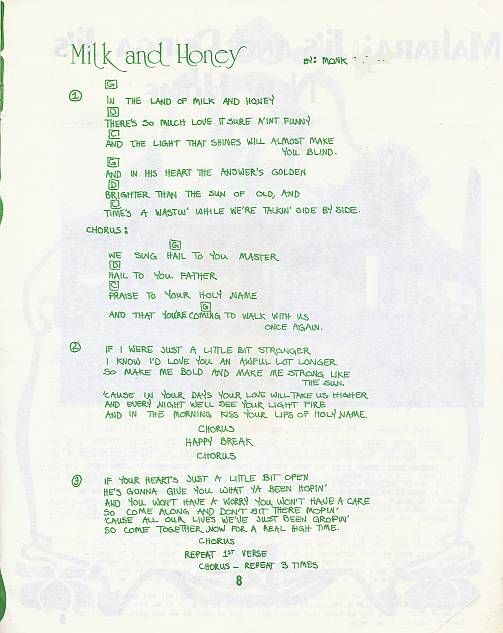 Milk and Honey
BY: MONK
G
1 IN THE LAND OF MILK AND HONEY
D
THERE'S SO MUCH LOVE IT SURE A'INT FUNNY
C
AND THE LIGHT THAT SHINES WILL ALMOST MAKE
YOU BLIND.
G
AND IN HIS HEART THE ANSWER'S GOLDEN
D
BRIGHTER THAN THE SUN OF OLD, AND
C
TIME'S A WASTIN' WHILE WE'RE TALKIN' SIDE BY SIDE.
CHORUS:
G
WE SING HAIL TO YOU MASTER
D
HAIL TO YOU FATHER
C
PRAISE TO YOUR HOLY NAME
G
AND THAT YOU'RE COMING TO WALK WITH US
ONCE AGAIN.
2 IF I WERE JUST A LITTLE BIT STRONGER
I KNOW I'D LOVE YOU AN AWFUL LOT LONGER
SO MAKE ME BOLD AND MAKE ME STRONG LIKE
THE SUN.
'CAUSE IN YOUR DAYS YOUR LOVE WILL TAKE US HIGHER
AND EVERY NIGHT WE'LL SEE YOUR LIGHT FIRE
AND IN THE MORNING KISS YOUR LIPS OF HOLY NAME.
CHORUS
HAPPY BREAK
CHORUS
3 IF YOUR HEART'S JUST A LITTLE BIT OPEN
HE'S GONNA GIVE YOU WHAT YA BEEN HOPIN'
AND YOU WON'T HAVE A WORRY YOU WON'T HAVE A CARE
SO COME ALONG AND DON'T SIT THERE MOPIN'
'CAUSE ALL OUR LIVES WE'VE JUST BEEN GROPIN'
SO COME TOGETHER NOW FOR A REAL HIGH TIME.
CHORUS
REPEAT 1ST VERSE
CHORUS - REPEAT 3 TIMES
8